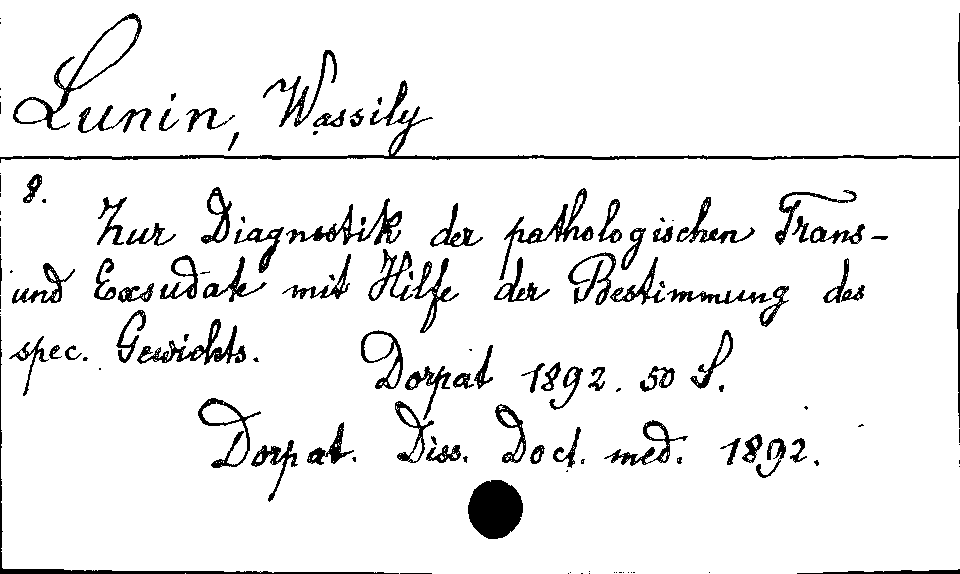 Lunin, Wassily
8.
Zur Diagnostik der pathologischen Trans-
und Exsudate mit Hilfe der Bestimmung des
spec. Gewichts. Dorpat 1892. 50 S.
Dorpat. Diss. Doct. med. 1892.